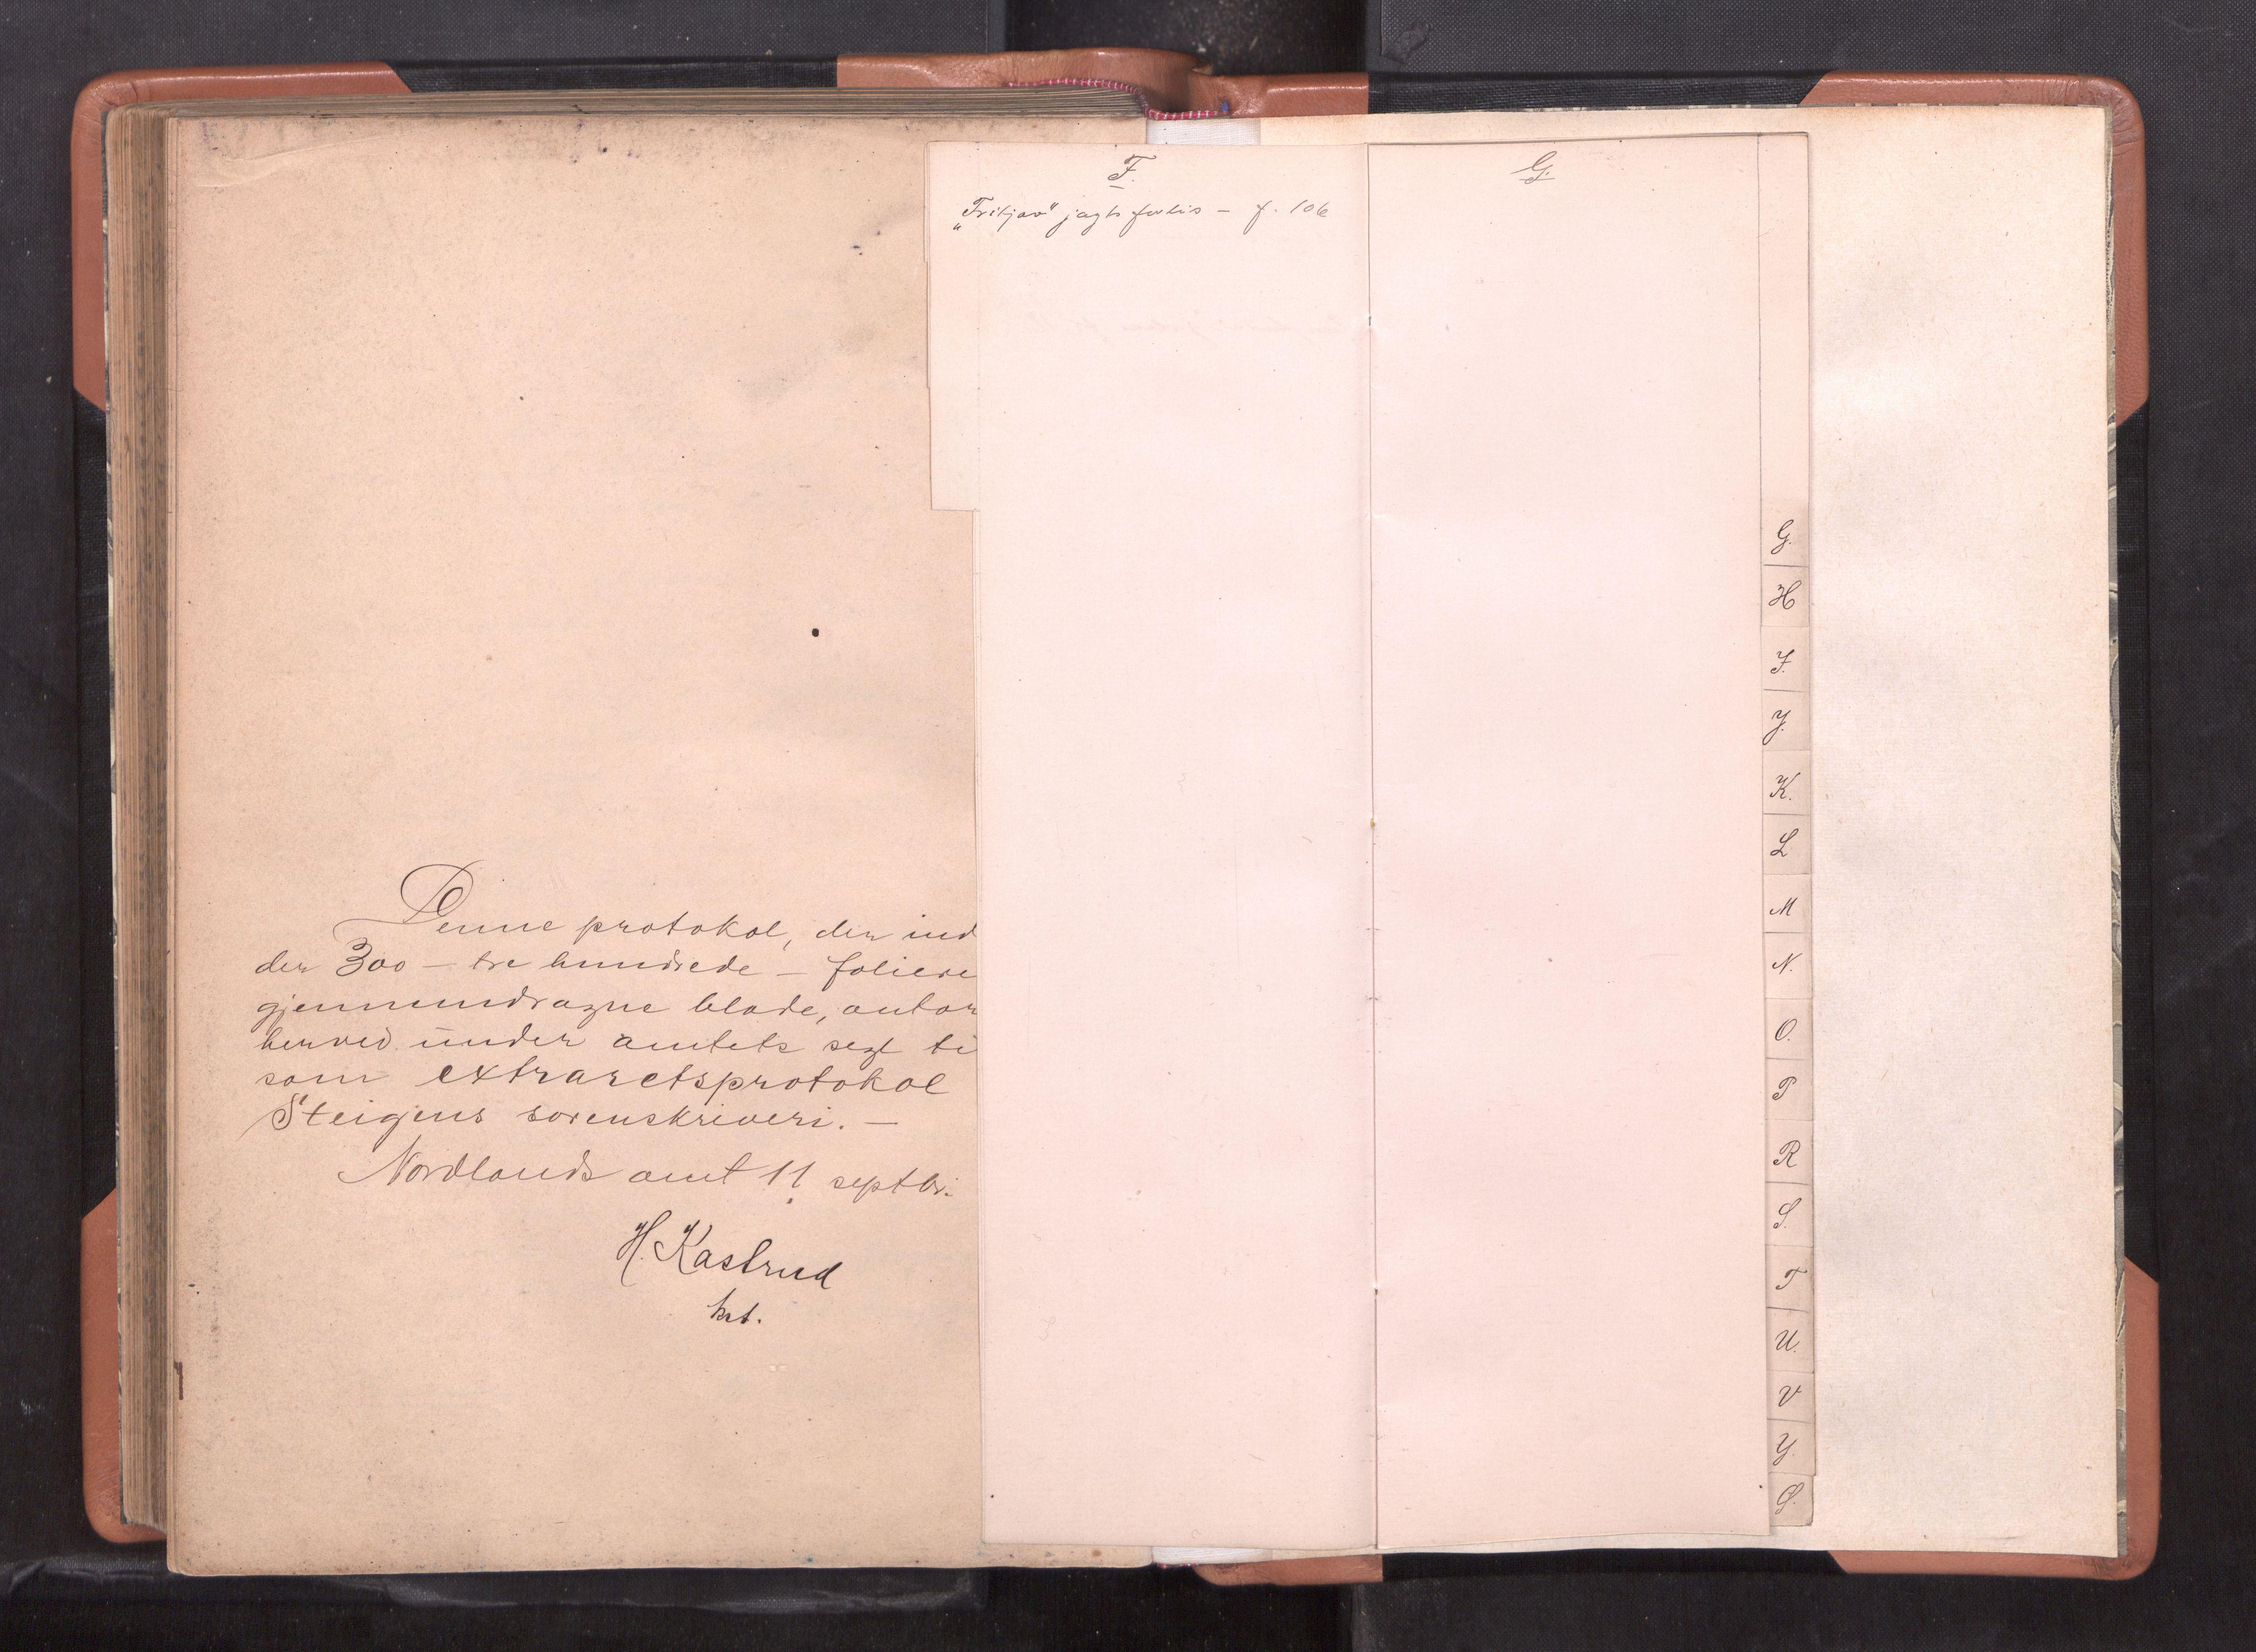 Denne protokol, der ind
der 300 – tre hundrede – foliere
gjennemdragne blade, autor
herved under amtets segl ti
som extraretsprotokol
Steigens sorenskriveri. –
Nordlands amt 11 septbr.
H. Kastrud
kst.
F.
"Fritjov" jagts forlis – f. 106
G.
G.
H
I.
J.
K.
L
M
N.
O.
P
R
S.
T
U.
V
Y.